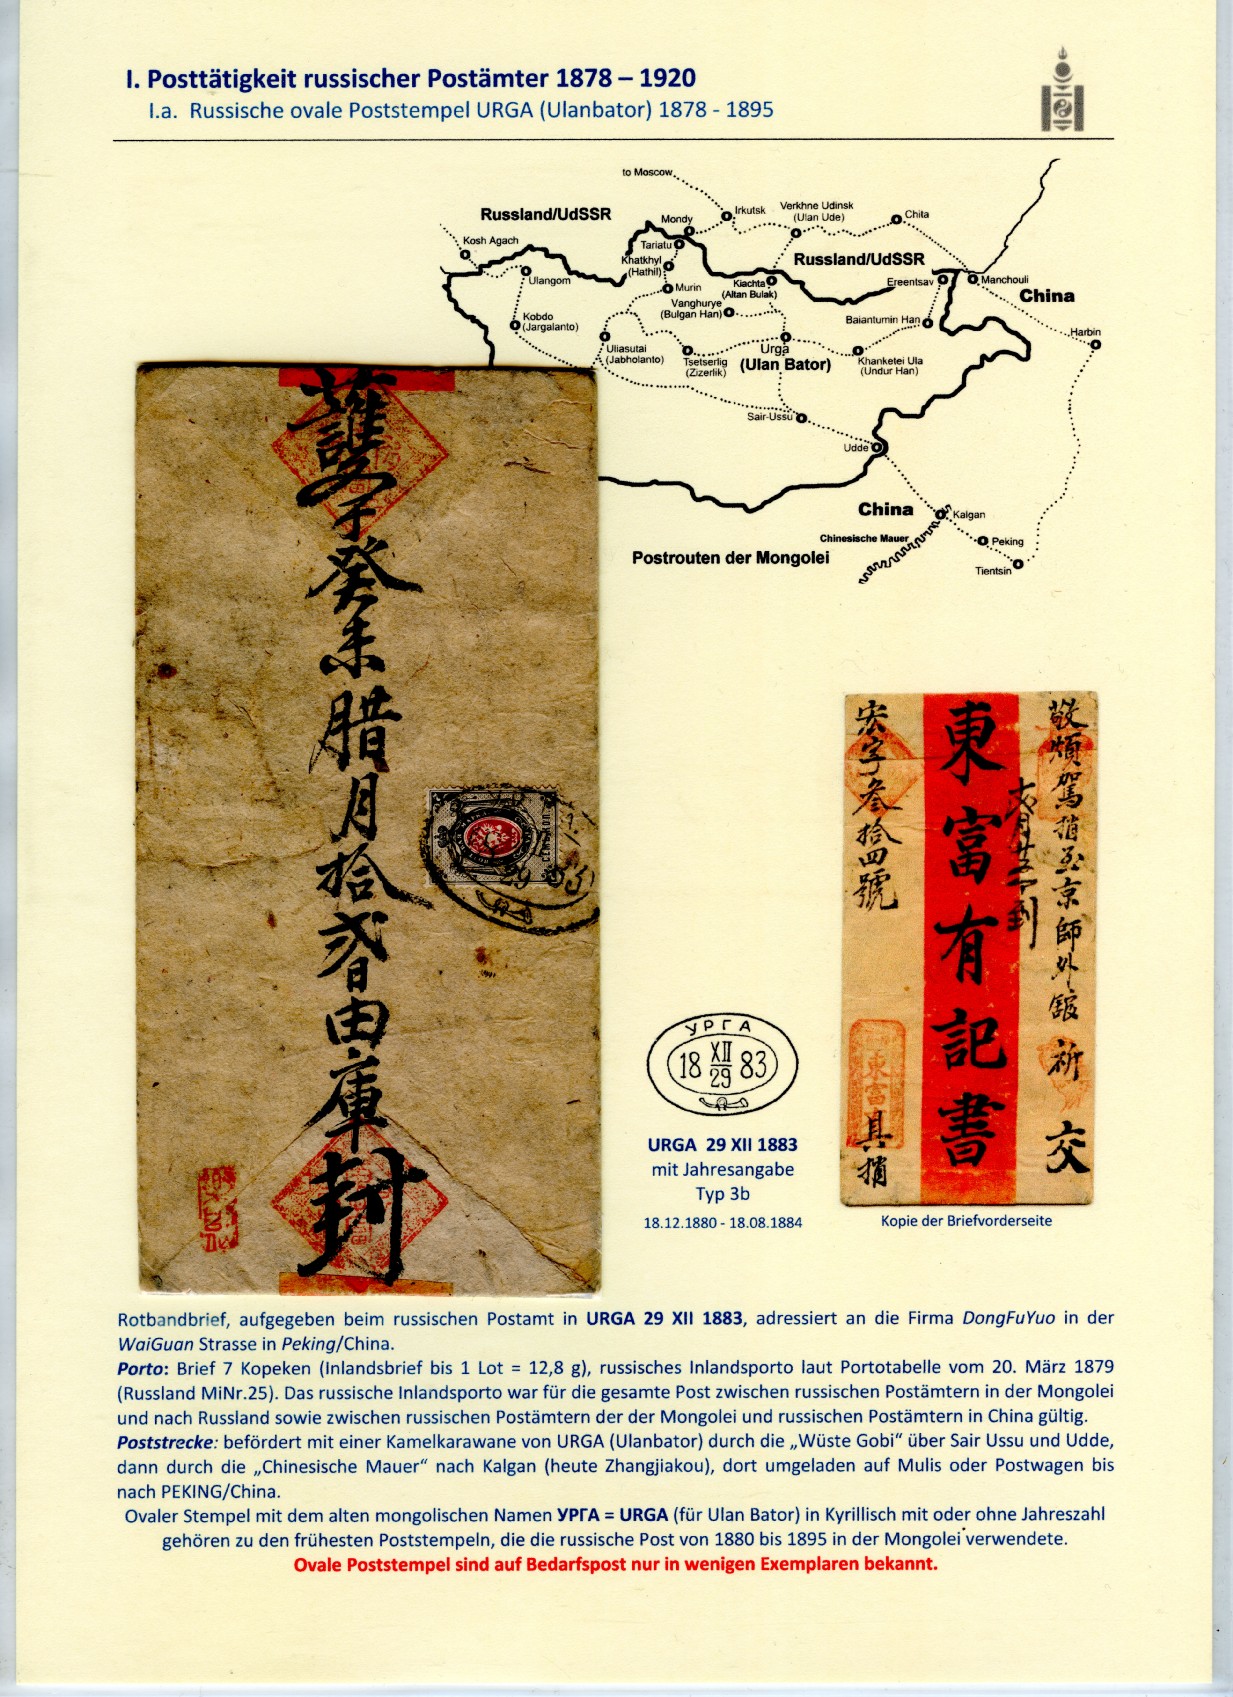 I. Posttätigkeit russischer Postämter 1878 – 1920
I.a. Russische ovale Poststempel URGA (Ulanbator) 1878 - 1895
to Moscow
Russland/UdSSR
Mondy
Irkutsk
Verkhne Udinsk
(Ulan Ude)
Chita
Kosh Agach
Tariatu
Khatkhyl
(Hathil)
Russland/UdSSR
Ulangom
Murin
Kiachta
(Altan Bulak)
Ereentsav
Manchouli
China
Vanghurye
(Bulgan Han)
Kobdo
(Jargalanto)
Baiantumin Han
Harbin
Uliasutai
(Jabholanto)
Tsetserlig
(Zizerlik)
Urga
(Ulan Bator)
Khanketei Ula
(Undur Han)
Sair-Ussu
Udde
China
Kalgan
Chinesische Mauer
Peking
Tientsin
Postrouten der Mongolei
癸未腊月拾貳日由庫封
敬煩駕捎至京師外舘祈交
東富有記書
宏字叁拾四號
東富
具捎
УРГА
18 XII 29 83
URGA 29 XII 1883
mit Jahresangabe
Typ 3b
18.12.1880 - 18.08.1884
Kopie der Briefvorderseite
Rotbandbrief, aufgegeben beim russischen Postamt in URGA 29 XII 1883, adressiert an die Firma DongFuYuo in der
WaiGuan Strasse in Peking/China.
Porto: Brief 7 Kopeken (Inlandsbrief bis 1 Lot = 12,8 g), russisches Inlandsporto laut Portotabelle vom 20. März 1879
(Russland MiNr.25). Das russische Inlandsporto war für die gesamte Post zwischen russischen Postämtern in der Mongolei
und nach Russland sowie zwischen russischen Postämtern der der Mongolei und russischen Postämtern in China gültig.
Poststrecke: befördert mit einer Kamelkarawane von URGA (Ulanbator) durch die „Wüste Gobi“ über Sair Ussu und Udde,
dann durch die „Chinesische Mauer“ nach Kalgan (heute Zhangjiakou), dort umgeladen auf Mulis oder Postwagen bis
nach PEKING/China.
Ovaler Stempel mit dem alten mongolischen Namen УРГА = URGA (für Ulan Bator) in Kyrillisch mit oder ohne Jahreszahl
gehören zu den frühesten Poststempeln, die die russische Post von 1880 bis 1895 in der Mongolei verwendete.
Ovale Poststempel sind auf Bedarfspost nur in wenigen Exemplaren bekannt.